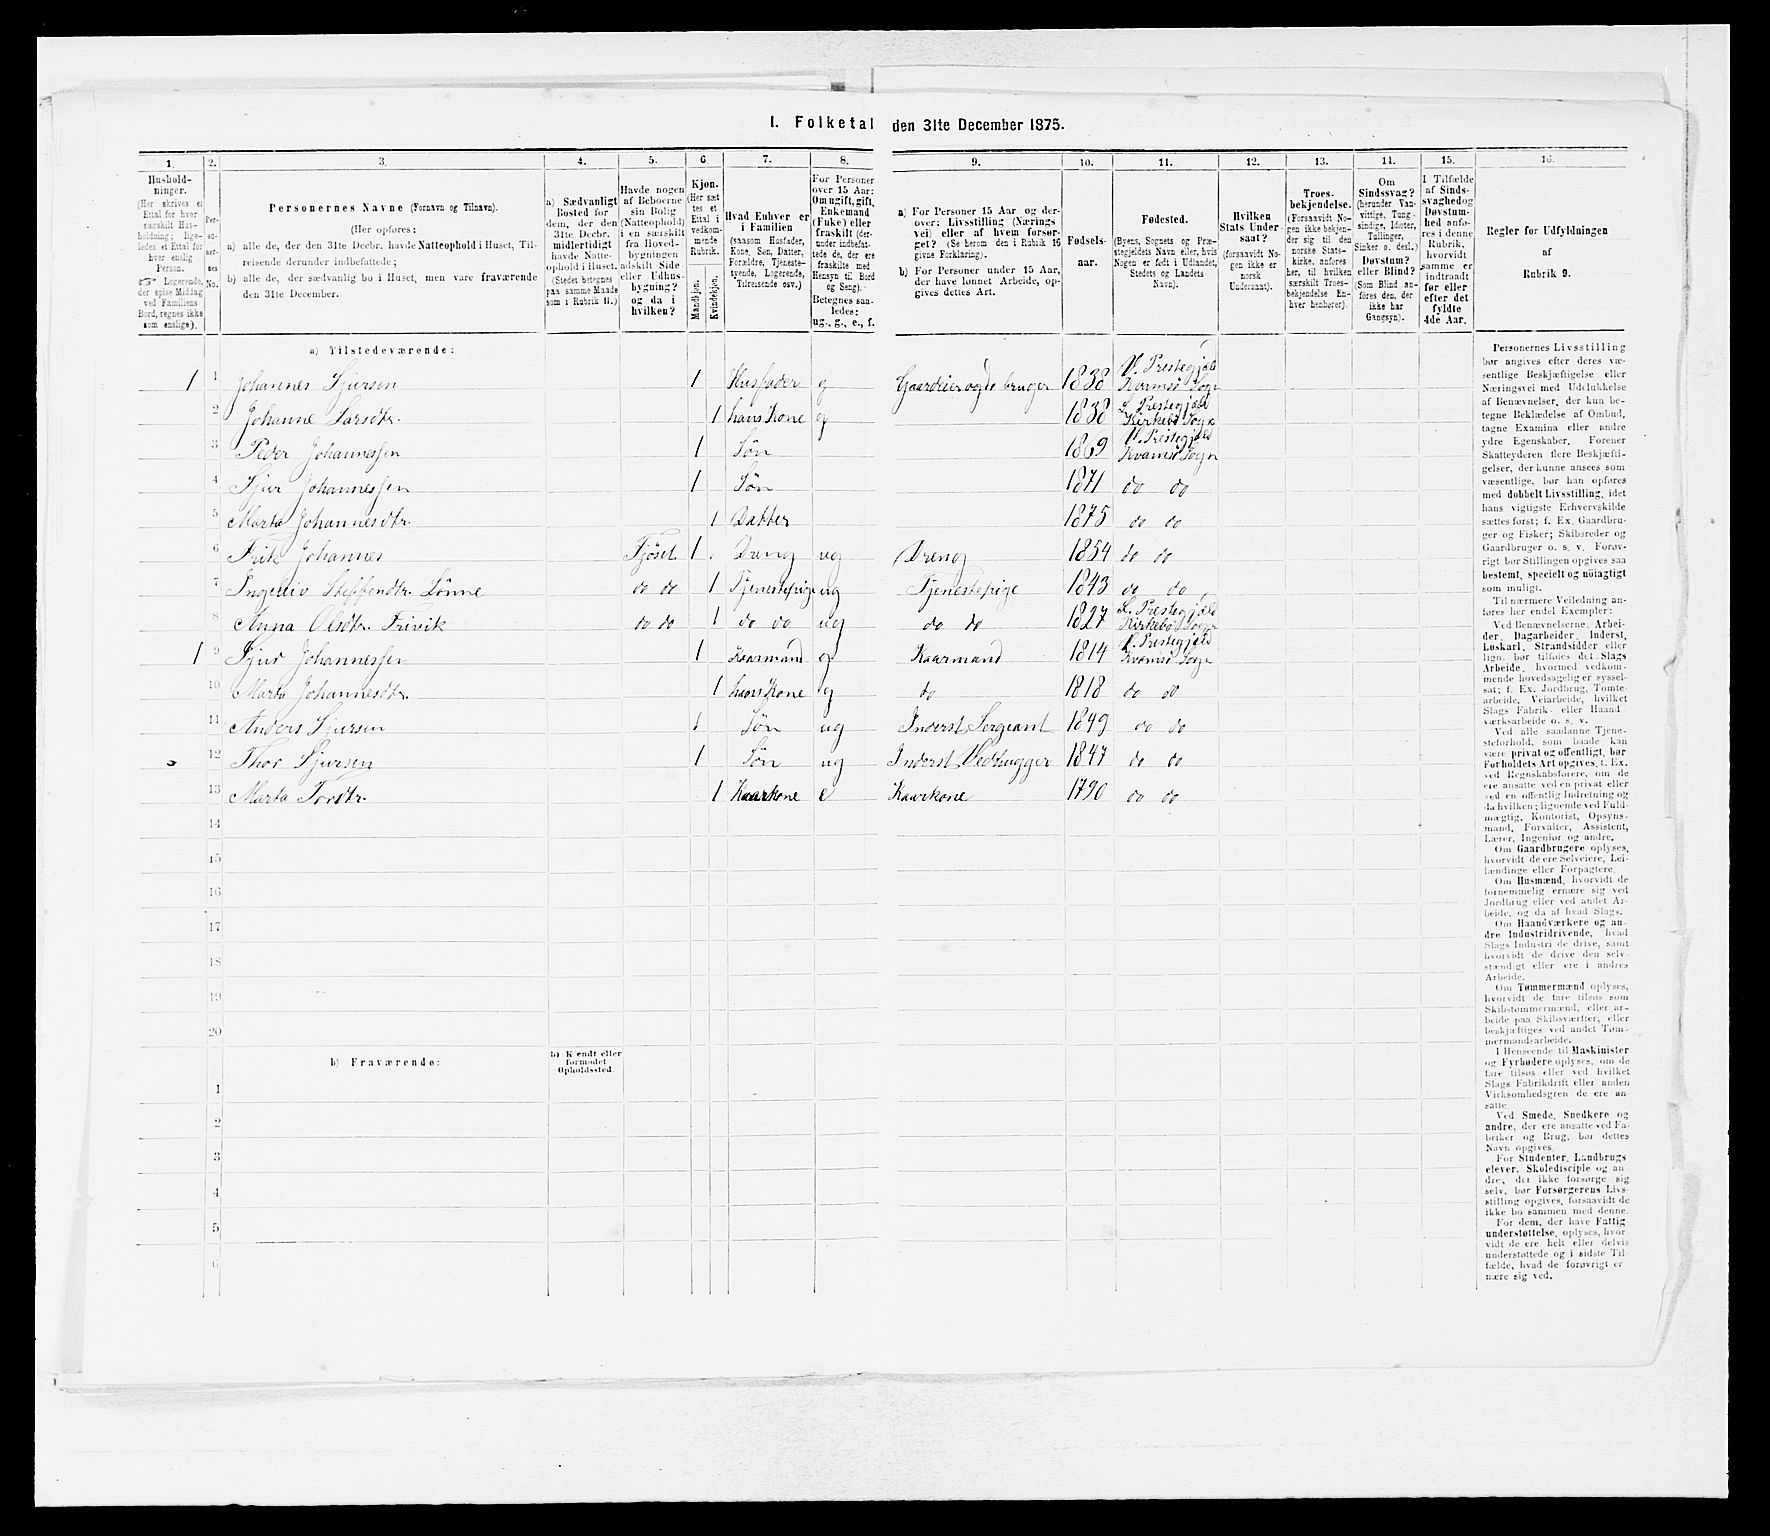 I. Folketal den 31te December 1875.
1. 2. 3. 4. 5. 6. 7. 8. 9. 10. 11. 12. 13. 14. 15. 16.
Hushold-
ninger.
(Her skrives et
Ettal for hver
særskilt Hus-
holdning; lige-
ledes et Ettal for
hver enslig
Person.
Logerende,
der spise Middag
ved Familiens
Bord, regnes ikke
som enslige).
Per-
so-
ner-
nes
No.
Personernes Navne (Fornavn og Tilnavn).
(Her opføres:
a) alle de, der den 31te Decbr. havde Natteophold i Huset, Til-
reisende derunder indbefattede;
b) alle de, der sædvanlig bo i Huset, men vare fraværende
den 31te December.
a) Sædvanligt
Bosted for
dem, der den
31te Decbr.
midlertidigt
havde Natte-
ophold i Huset.
(Stedet betegnes
paa samme Maade
som i Rubrik 11.)
Havde nogen
af Beboerne
sin Bolig
(Natteophold)
i en særskilt
fra Hoved-
bygningen
adskilt Side-
eller Udhus-
bygning?
og da i
hvilken?
Kjøn.
(Her sæt-
tes et
Ettal i
vedkom-
mende
Rubrik.
Mandkjøn.
Kvindekjøn.
Hvad Enhver er
i Familien
(saasom Husfader,
Kone, Søn, Datter,
Forældre, Tjeneste-
tyende, Logerende,
Tilreisende osv.)
For Personer
over 15 Aar:
Om ugift, gift,
Enkemand
(Enke) eller
fraskilt (der-
under indbefat-
tede de, der ere
fraskilte med
Hensyn til Bord
og Seng).
Betegnes saa-
ledes:
ug., g., e., f.
a) For Personer 15 Aar og der-
over: Livsstilling (Nærings-
vei) eller af hvem forsør-
get? (Se herom den i Rubrik 16
givne Forklaring).
b) For Personer under 15 Aar,
der have lønnet Arbeide, op-
gives dettes Art.
Fødsels-
aar.
Fødested.
(Byens, Sognets og Præ-
stegjeldets Navn eller, hvis
Nogen er født i Udlandet,
Stedets og Landets
Navn).
Hvilken
Stats Under-
saat?
(forsaavidt No-
gen ikke er
norsk
Undersaat).
Troes-
bekjendelse.
(Forsaavidt No-
gen ikke bekjen-
der sig til den
norske Stats-
kirke, anføres
her, til hvilken
særskilt Troes-
bekjendelse En-
hver henhører).
Om
Sindssvag?
(herunder Van-
vittige, Tung-
sindige, Idioter,
Tullinger,
Sinker o. desl.)
Døvstum?
eller Blind?
(Som Blind an-
føres den, der
ikke har
Gangsyn).
I Tilfælde
af Sinds-
svaghed og
Døvstum-
hed anfø-
res i denne
Rubrik,
hvorvidt
samme er
indtraadt
før eller
efter det
fyldte
4de Aar.
Regler for Udfyldningen
af
Rubrik 9.
a) Tilstedeværende:
1 1 Johannes Sjursen 1 Husfader g Gaardeier og do bruger 1838 V. Prestegjæld Kvamsø Sogn
2 Johanne Larsdtr. 1 hans Kone g 1838 L. Prestegjæld Kirkebø Sogn
3 Peder Johannessen 1 Søn 1869 V. Prestegjæld Kvamsø Sogn
4 Sjur Johannessen 1 Søn 1871 do do
5 Marta Johannesdtr. 1 Datter 1875 do do
6 Johannes Fjöset 1 Dreng ug Dreng 1854 do do
7 Steffensdtr. Lønne do do 1 Tjenestepige ug Tjenestepige 1843 do do
8 Anna Olsdtr. do do 1 do do ug do do 1827 L. Prestegjæld Kirkebø Sogn
1 9 Sjur Johannessen 1 Kaarmand g Kaarmand 1814 V. Prestegjæld Kvamsø Sogn
10 Marta Johannesdtr. 1 hans Kone g do 1818 do do
11 Anders Sjursen 1 Søn ug Inderst Sergeant 1849 do do
12 Thor Sjursen 1 Søn ug Inderst Vedhugger 1847 do do
13 Marta Tordtr. 1 Kaarkone e Kaarkone 1790 do do
14
15
16
17
18
19
20
b) Fraværende:
b) Kjendt eller
formodet
Opholdssted.
1
2
3
4
5
6
Personernes Livsstilling
bør angives efter deres væ-
sentlige Beskjæftigelse eller
Næringsvei med Udelukkelse
af Benævnelser, der kun be-
tegne Beklædelse af Ombud,
tagne Examina eller andre
ydre Egenskaber. Forener
Skatteyderen flere Beskjæfti-
gelser, der kunne ansees som
væsentlige, bør han opføres
med dobbelt Livsstilling, idet
hans vigtigste Erhvervskilde
sættes først; f. Ex. Gaardbru-
ger og Fisker; Skibsreder og
Gaardbruger o. s. v. Forøv-
rigt bør Stillingen opgives saa
bestemt, specielt og nöiagtigt
som muligt.
Til nærmere Veiledning an-
føres her endel Exempler:
Ved Benævnelserne, Arbei-
der, Dagarbeider, Inderst,
Løskarl, Strandsidder eller
lign. bør tilføies det Slags
Arbeide, hvormed vedkom-
mende hovedsagelig er syssel-
sat; f. Ex. Jordbrug, Tomte-
arbeide, Veiarbeide, hvilket
Slags Fabrik- eller Haand-
værksarbeide o. s. v.
Ved alle saadanne Tjene-
steforhold, som baade kan
være privat og offentligt, bør
Forholdets Art opgives, t. Ex.
ved Regnskabsførere, om de
ere ansatte ved en privat eller
ved en offentlig Indretning og
da hvilken; lignende ved Fuld-
mægtig, Kontorist, Opsyns-
mand, Forvalter, Assistent,
Lærer, Ingeniør og andre.
Om Gaardbrugere oplyses,
hvorvidt de ere Selveiere, Lei-
lændinge eller Forpagtere.
Om Husmænd, hvorvidt de
fornemmelig ernære sig ved
Jordbrug eller ved andet Ar-
beide, og da af hvad Slags.
Om Haandværkere og an-
dre Industridrivende, hvad
Slags Industri de drive, samt
hvorvidt de drive den selv-
stændigt eller ere i andres
Arbeide.
Om Tømmermænd oplyses,
hvorvidt de fare tilsøs som
Skibstømmermænd, eller ar-
beide paa Skibsværfter, eller
beskjæftiges ved andet Tøm-
mermandsarbeide.
I Henseende til Maskinister
og Fyrbødere oplyses, om de
fare tilsøs eller ved hvilket
Slags Fabrikdrift eller anden
Virksomhedsgren de ere an-
satte
Ved Smede, Snedkere og
andre, der ere ansatte ved Fa-
briker og Brug, bør dettes
Navn opgives.
For Studenter, Landbrugs-
elever, Skoledisciple og an-
dre, der ikke forsørge sig
selv, bør Forsørgerens Livs-
stilling opgives, forsaavidt de
ikke bo sammen med denne.
For dem, der have Fattig-
understøttelse, oplyses, hvor-
vidt de ere helt eller delvis
understøttede og i sidste Til-
fælde, hvad de forøvrigt er-
nære sig ved.